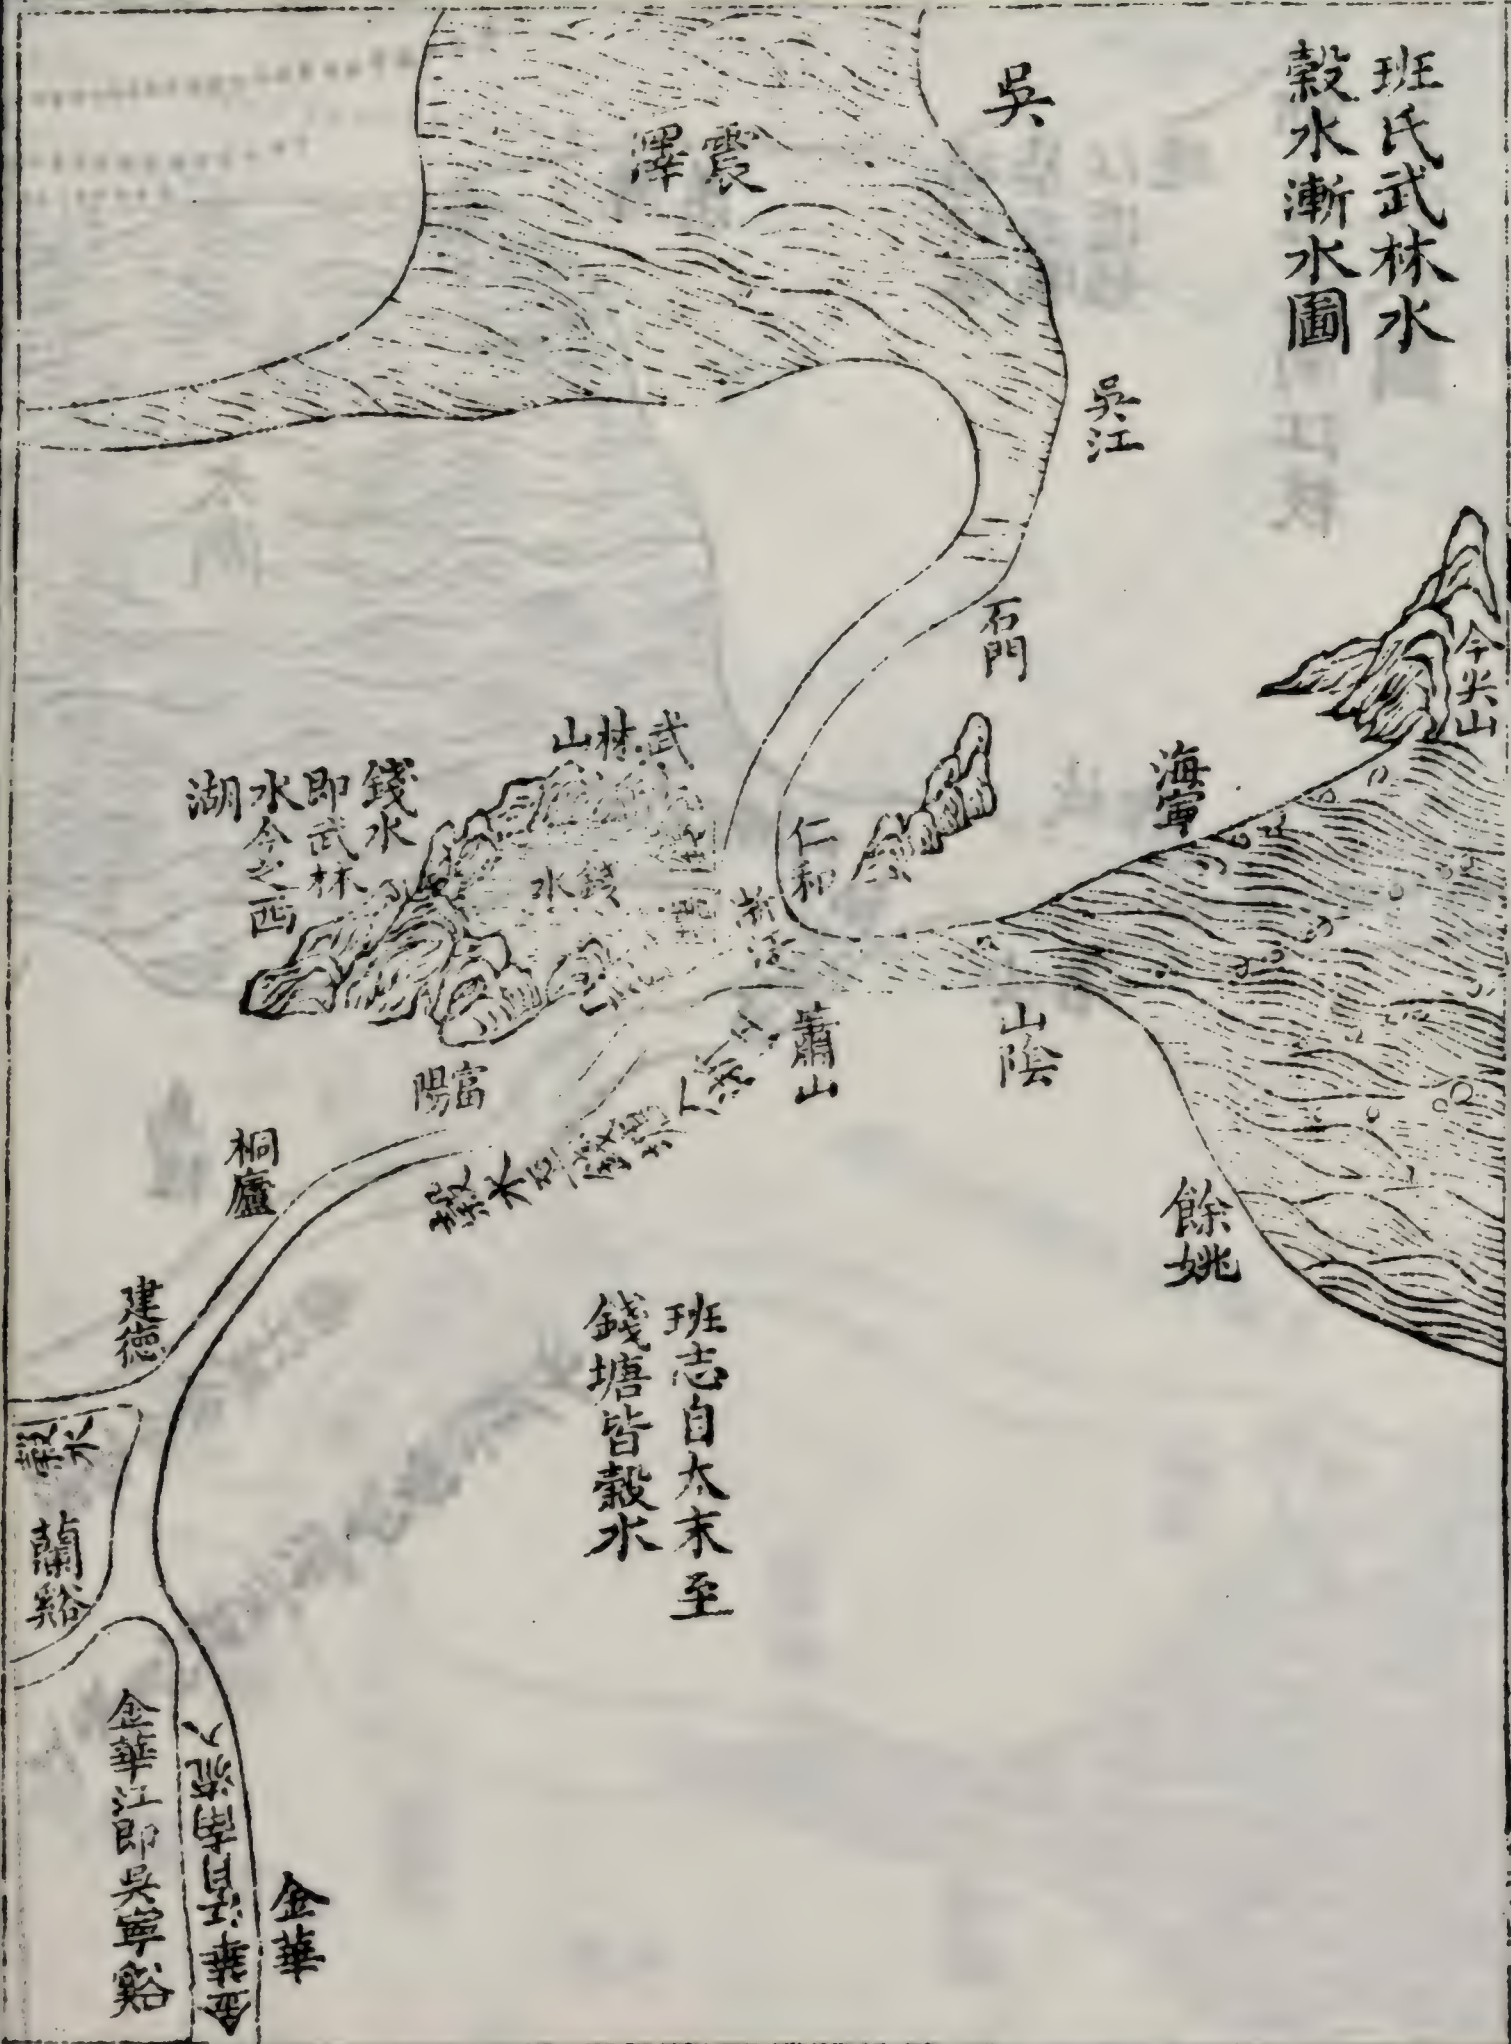 班氏武林水
穀水漸水圖
吳
震
澤
吳江
石門
今尖山
海寧
武林山
錢水
即武林
水今之西
湖
錢水
仁和
浙江
蕭山
山陰
餘姚
富陽
桐廬
建德
穀水
蘭谿
班志自太末至
錢塘皆穀水
金華江即吳寧谿
金華江自南流入
金華